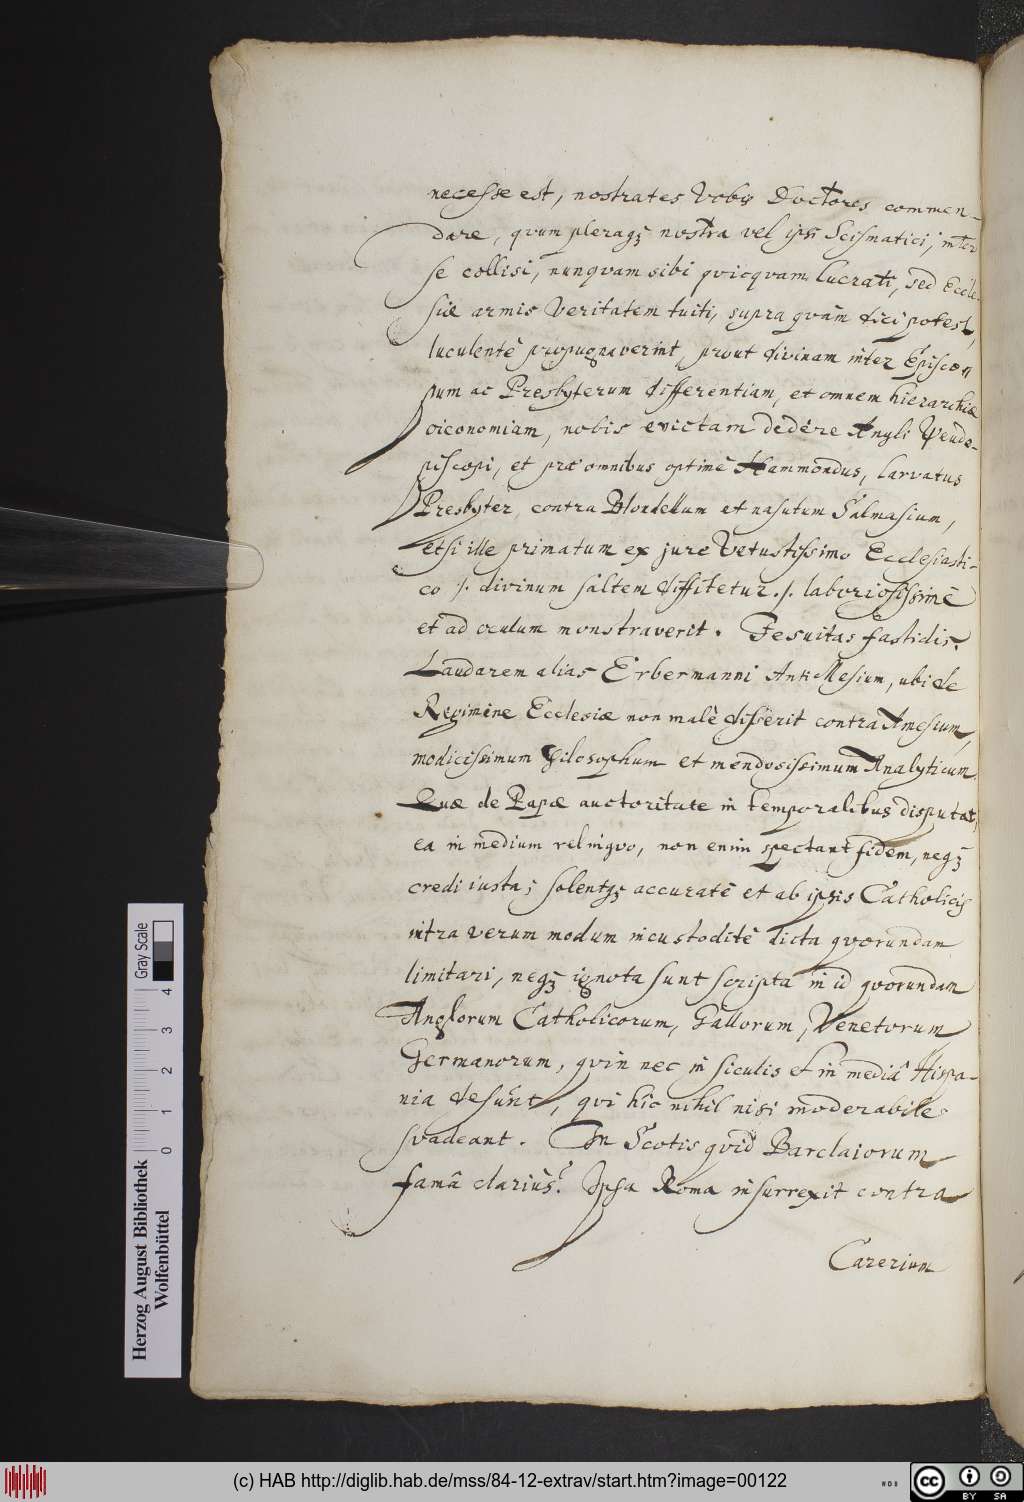 necesse est, nostrates Vobis Doctores commen-
dare, qvum pleraq3 nostra vel ipsi Scismatici, inter
se collisi, nunqvam sibi qvicqvam lucrati, sed Eccle-
siæ armis Veritatem tuiti, supra qvam dici potest,
luculentè propugnaverint, prout divinam inter Episco-
pum ac Presbyterum differentiam, et omnem hierarchiæ
oiconomiam, nobis evictam dedêre Angli Pseudo-
piscopi, et præ omnibus optimè Hammondus, larvatus
Presbyter, contra Blondellum et nasutum Salmasium,
etsi ille primatum ex jure Vetustissimo Ecclesiasti-
co /. divinum saltem diffitetur ./. laboriosissimè
et ad oculum monstraverit. Jesuitas fastidis?
Laudarem alias Erbermanni Anti Mesium, ubi de
Regimine Ecclesiæ non malè disserit contra Amesium,
modicissimum Philosophum et mendosissimum Analyticum
Quæ de Papæ auctoritate in temporalibus disputat,
ea in medium relinqvo, non enim spectant fidem, neq3
credi iusta; solentq3 accuratè et ab ipsis Catholicis
intra verum modum incustoditè dicta qvorundam
limitari, neq3 ignota sunt scripta in id qvorundam
Anglorum Catholicorum, Gallorum, Venetorum
Germanorum, qvin nec in Siculis et in mediâ Hispa-
nia desunt, qvi hîc nihil nisi moderabile
svadeant. In Scotis qvid Barclaiorum
famâ clarius? Ipsa Roma insurrexit contra
Carerium
Herzog August Bibliothek
Wolfenbüttel
0 1 2 3 4
Gray Scale
(c) HAB http://diglib.hab.de/mss/84-12-extrav/start.htm?image=00122
cc BY SA